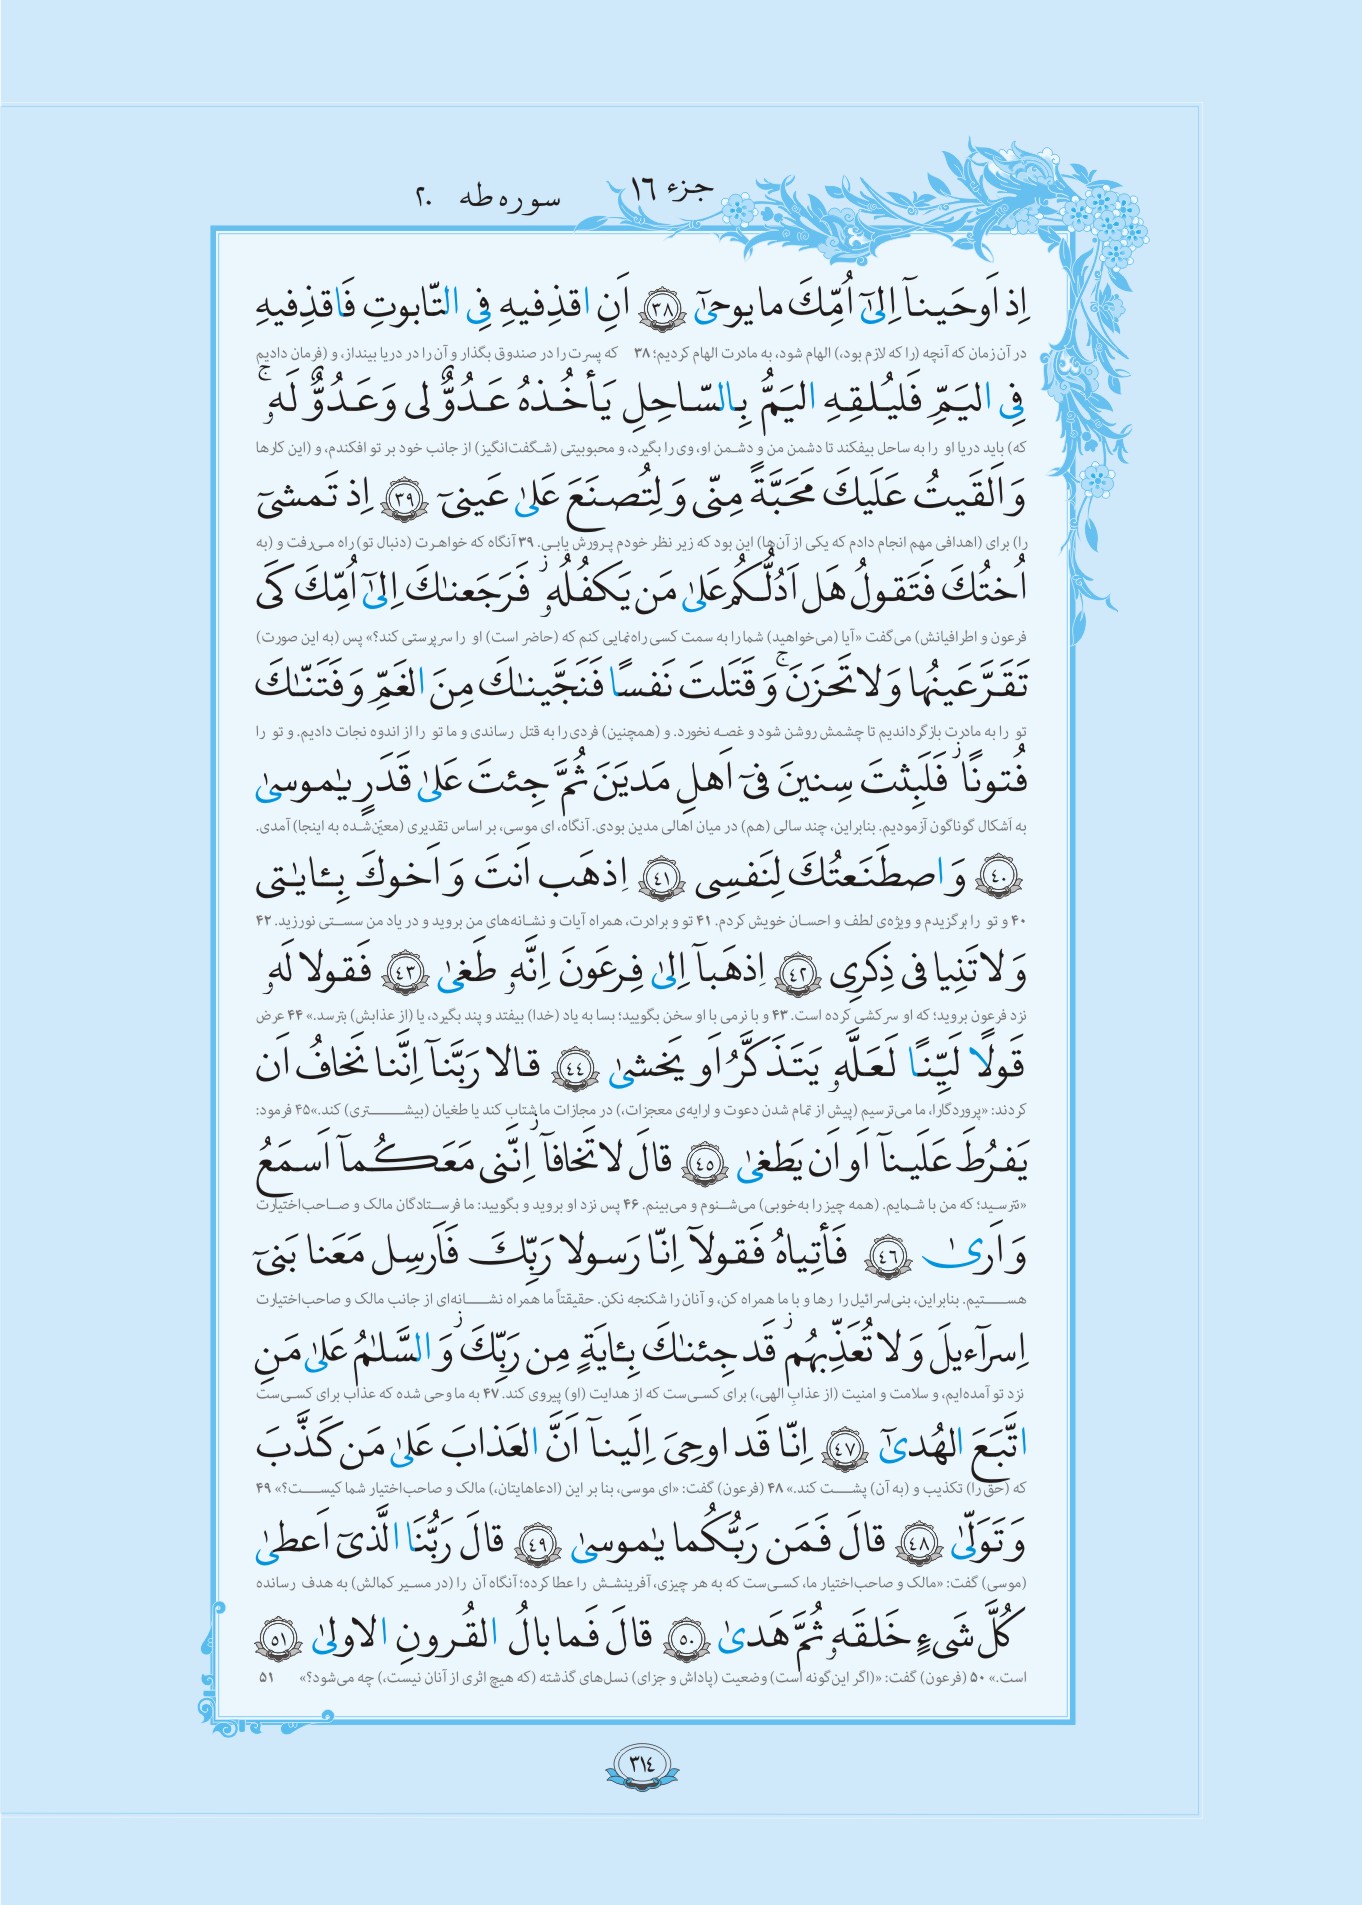 جزء ١٦
سوره طه ٢٠
اِذ اَوحَينآ اِلىٰٓ اُمِّكَ ما يوحىٰٓ ﴿٣٨﴾ اَنِ اقذِفيهِ فِى التّابوتِ فَاقذِفيهِ
در آن زمان که آنچه (را که لازم بود،) الهام شود، به مادرت الهام کردیم؛ ۳۸ که پسرت را در صندوق بگذار و آن را در دریا بینداز، و (فرمان دادیم
فِى اليَمِّ فَليُلقِهِ اليَمُّ بِالسّاحِلِ يَأخُذهُ عَدُوٌّ لى وَ عَدُوٌّ لَهٗ ۚ
که) باید دریا او را به ساحل بیفکند تا دشمن من و دشمن او، وی را بگیرد، و محبوبیتی (شگفت‌انگیز) از جانب خود بر تو افکندم، و (این کارها
وَ اَلقَيتُ عَلَيكَ مَحَبَّةً مِنّى وَ لِتُصنَعَ عَلىٰ عَينىٓ ﴿٣٩﴾ اِذ تَمشىٓ
را) برای (اهدافی مهم انجام دادم که یکی از آن‌ها) این بود که زیر نظر خودم پرورش یابی. ۳۹ آنگاه که خواهرت (دنبال تو) راه می‌رفت و (به
اُختُكَ فَتَقولُ هَل اَدُلُّكُم عَلىٰ مَن يَكفُلُهٗ ۖ فَرَجَعنٰكَ اِلىٰٓ اُمِّكَ كَى
فرعون و اطرافیانش) می‌گفت «آیا (می‌خواهید) شما را به سمت کسی راه‌نمایی کنم که (حاضر است) او را سرپرستی کند؟» پس (به این صورت)
تَقَرَّ عَينُها وَ لا تَحزَنَ ۚ وَ قَتَلتَ نَفسًا فَنَجَّينٰكَ مِنَ الغَمِّ وَ فَتَنّٰكَ
تو را به مادرت بازگرداندیم تا چشمش روشن شود و غصه نخورد. و (همچنین) فردی را به قتل رساندی و ما تو را از اندوه نجات دادیم. و تو را
فُتونًا ۚ فَلَبِثتَ سِنينَ فىٓ اَهلِ مَديَنَ ثُمَّ جِئتَ عَلىٰ قَدَرٍ يٰموسىٰ
به اَشکال گوناگون آزمودیم. بنابراین، چند سالی (هم) در میان اهالی مدین بودی. آنگاه، ای موسی، بر اساس تقدیری (معیّن‌شده به اینجا) آمدی.
﴿٤٠﴾ وَ اصطَنَعتُكَ لِنَفسِى ﴿٤١﴾ اِذهَب اَنتَ وَ اَخوكَ بِـٔايٰتى
۴۰ و تو را برگزیدم و ویژه‌ی لطف و احسان خویش کردم. ۴۱ تو و برادرت، همراه آیات و نشانه‌های من بروید و در یاد من سستی نورزید. ۴۲
وَ لا تَنِيا فى ذِكرِى ﴿٤٢﴾ اِذهَبآ اِلىٰ فِرعَونَ اِنَّهٗ طَغىٰ ﴿٤٣﴾ فَقولا لَهٗ
نزد فرعون بروید؛ که او سرکشی کرده است. ۴۳ و با نرمی با او سخن بگویید؛ بسا به یاد (خدا) بیفتد و پند بگیرد، یا (از عذابش) بترسد.» ۴۴ عرض
قَولًا لَيِّنًا لَعَلَّهٗ يَتَذَكَّرُ اَو يَخشىٰ ﴿٤٤﴾ قالا رَبَّنآ اِنَّنا نَخافُ اَن
کردند: «پروردگارا، ما می‌ترسیم (پیش از تمام شدن دعوت و ارایه‌ی معجزات،) در مجازات ما شتاب کند یا طغیان (بیشتری) کند.»۴۵ فرمود:
يَفرُطَ عَلَينآ اَو اَن يَطغىٰ ﴿٤٥﴾ قالَ لا تَخافآ ۖ اِنَّنى مَعَكُمآ اَسمَعُ
«نترسید؛ که من با شمایم. (همه چیز را به‌خوبی) می‌شنوم و می‌بینم. ۴۶ پس نزد او بروید و بگویید: ما فرستادگان مالک و صاحب‌اختیارت
وَ اَرىٰ ﴿٤٦﴾ فَأتِياهُ فَقولآ اِنّا رَسولا رَبِّكَ فَاَرسِل مَعَنا بَنىٓ
هستیم. بنابراین، بنی‌اسرائیل را رها و با ما همراه کن، و آنان را شکنجه نکن. حقیقتاً ما همراه نشانه‌ای از جانب مالک و صاحب‌اختیارت
اِسرآءيلَ وَ لا تُعَذِّبهُم ۖ قَد جِئنٰكَ بِـٔايَةٍ مِن رَبِّكَ ۖ وَ السَّلٰمُ عَلىٰ مَنِ
نزد تو آمده‌ایم، و سلامت و امنیت (از عذاب الهی،) برای کسی‌ست که از هدایت (او) پیروی کند. ۴۷ به ما وحی شده که عذاب برای کسی‌ست
اتَّبَعَ الهُدىٰٓ ﴿٤٧﴾ اِنّا قَد اوحِىَ اِلَينآ اَنَّ العَذابَ عَلىٰ مَن كَذَّبَ
که (حق را) تکذیب و (به آن) پشت کند.» ۴۸ (فرعون) گفت: «ای موسی، بنا بر این (ادعاهایتان،) مالک و صاحب‌اختیار شما کیست؟» ۴۹
وَ تَوَلّىٰ ﴿٤٨﴾ قالَ فَمَن رَبُّكُما يٰموسىٰ ﴿٤٩﴾ قالَ رَبُّنَا الَّذىٓ اَعطىٰ
(موسی) گفت: «مالک و صاحب‌اختیار ما، کسی‌ست که به هر چیزی، آفرینشش را عطا کرده؛ آنگاه آن را (در مسیر کمالش) به هدف رسانده
كُلَّ شَىءٍ خَلقَهٗ ثُمَّ هَدىٰ ﴿٥٠﴾ قالَ فَما بالُ القُرونِ الاولىٰ ﴿٥١﴾
است.» ۵۰ (فرعون) گفت: «(اگر این‌گونه است) وضعیت (پاداش و جزای) نسل‌های گذشته (که هیچ اثری از آنان نیست،) چه می‌شود؟» ۵۱
٣١٤